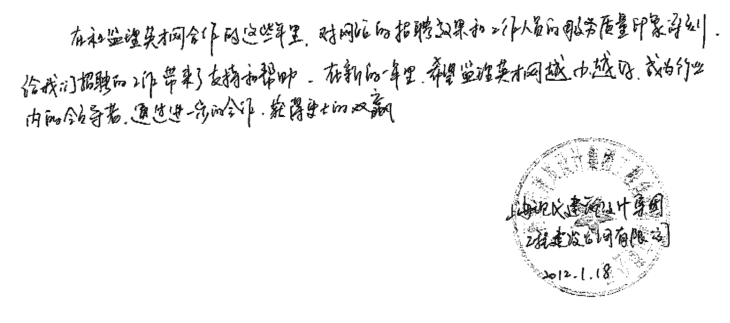 在和监理英才网合作的这些年里，对网站的招聘效果和工作人员的服务质量印象深刻，
给我们招聘的工作带来了支持和帮助。在新的一年里，希望监理英才网越办越好，成为行业
内的领导者，通过进一步的合作，获得更大的双赢
上海现代建筑设计集团
工程建设咨询有限公司
2012.1.18